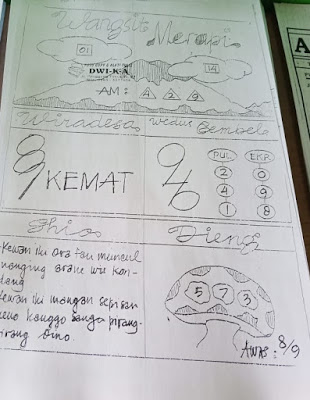 Wangsit Merapi
01
DWI-KA
14
AM: 4 2 9
Wiradesa
Wedus Gembel
8/9 KEMAT
9/6
PUL EKR
2 0
4 9
1 8
Shio
Dieng
Kewan iki ora tau muncul
nanging arane wis kon-
dang
Kewan iki mangan sepisan
kanggo
dino.
5 7 3
AWAS: 8/9